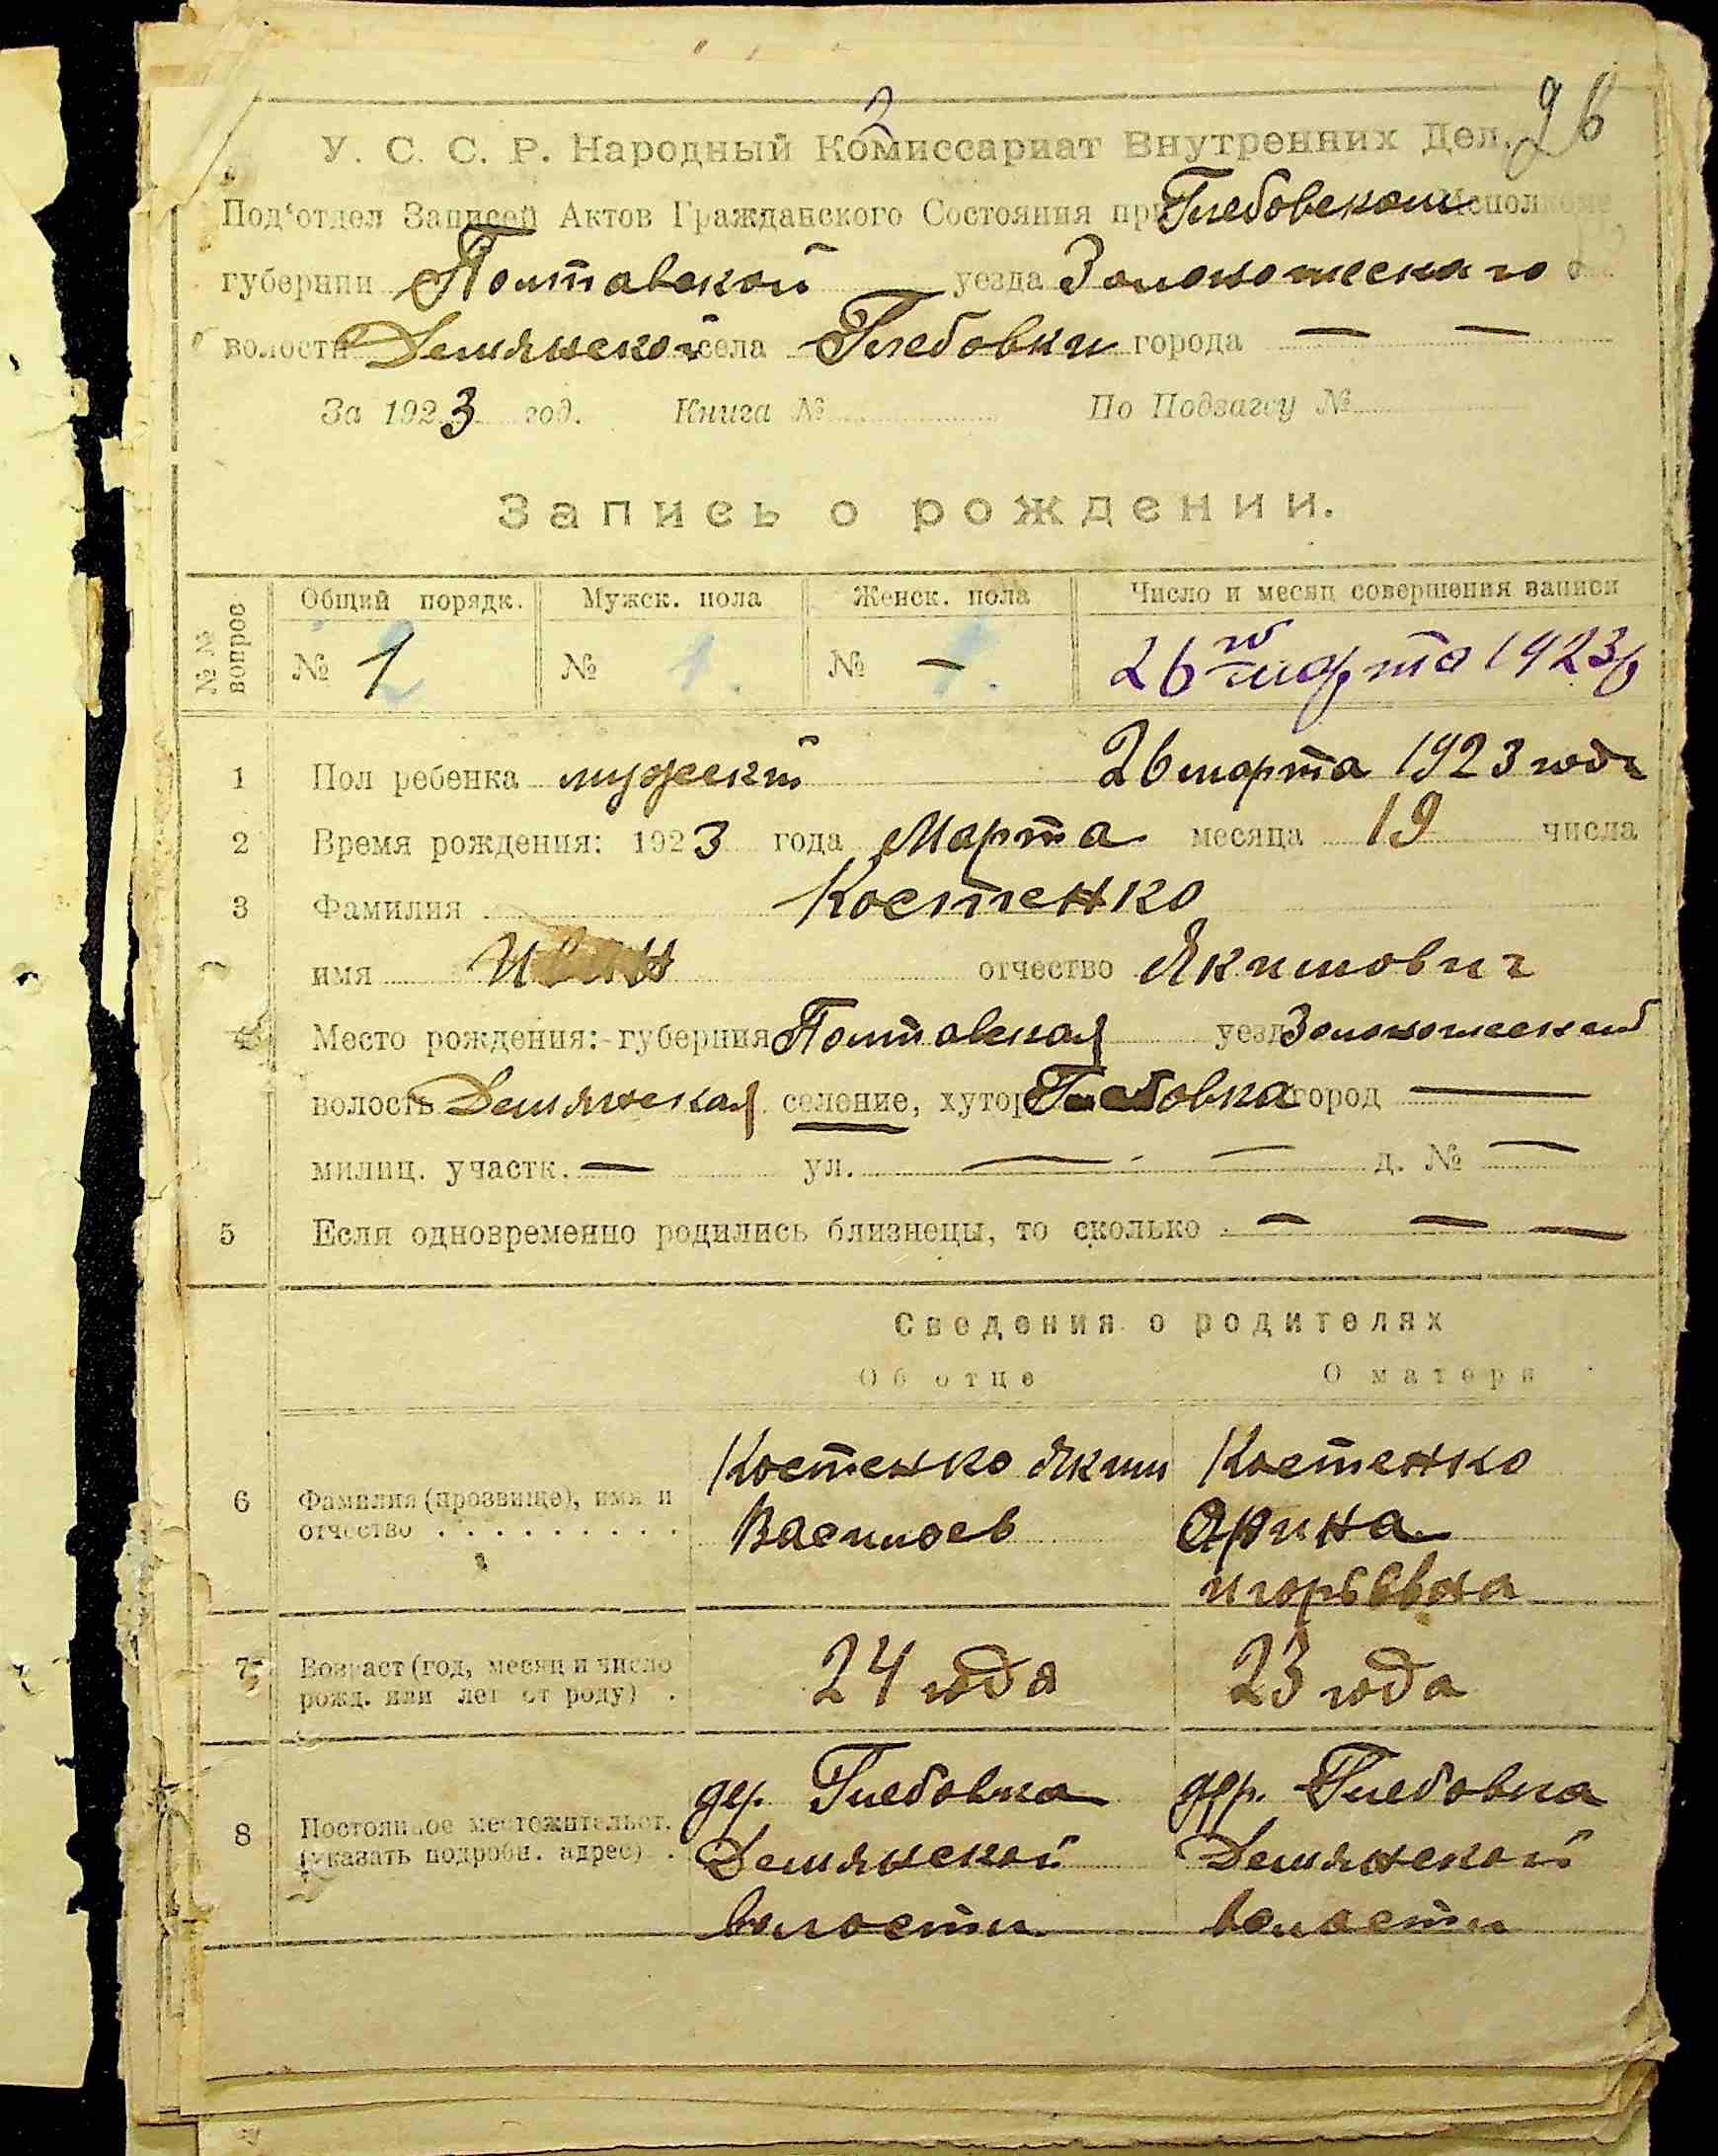 2
26
У. С. С. Р. Народный Комиссариат Внутренних Дел.
Под'отдел Записей Актов Гражданского Состояния при Глебовском Исполкоме
губернии Полтавской уезда Золотоношескаго
волости Демянской села Глебовки города — —
За 1923 год. Книга № По Подзагсу №
Запись о рождении.
№№ вопрос
Общий порядк. Мужск. пола Женск. пола Число и месяц совершения записи
№ 1 № 1. № — 26го марта 1923 г
1 Пол ребенка мужский 26 марта 1923 года
2 Время рождения: 1923 года Марта месяца 19 числа
3 Фамилия Костенко
имя Иван отчество Якимович
4 Место рождения: губерния Полтавская уезд Золотоношеский
волость Демянская селение, хутор Глебовка город —
милиц. участк. — ул. — — д. № —
5 Если одновременно родились близнецы, то сколько — — —
Сведения о родителях
Об отце О матери
6 Фамилия (прозвище), имя и отчество . . . . . . . . .
Костенко Яким Костенко
Васильев Арина
Игорьевна
7 Возраст (год, месяц и число рожд. или лет от роду) . 24 года 23 года
8 Постоянное местожительст. (указать подробн. адрес) .
дер. Глебовка дер. Глебовка
Демянской Демянской
волости волости